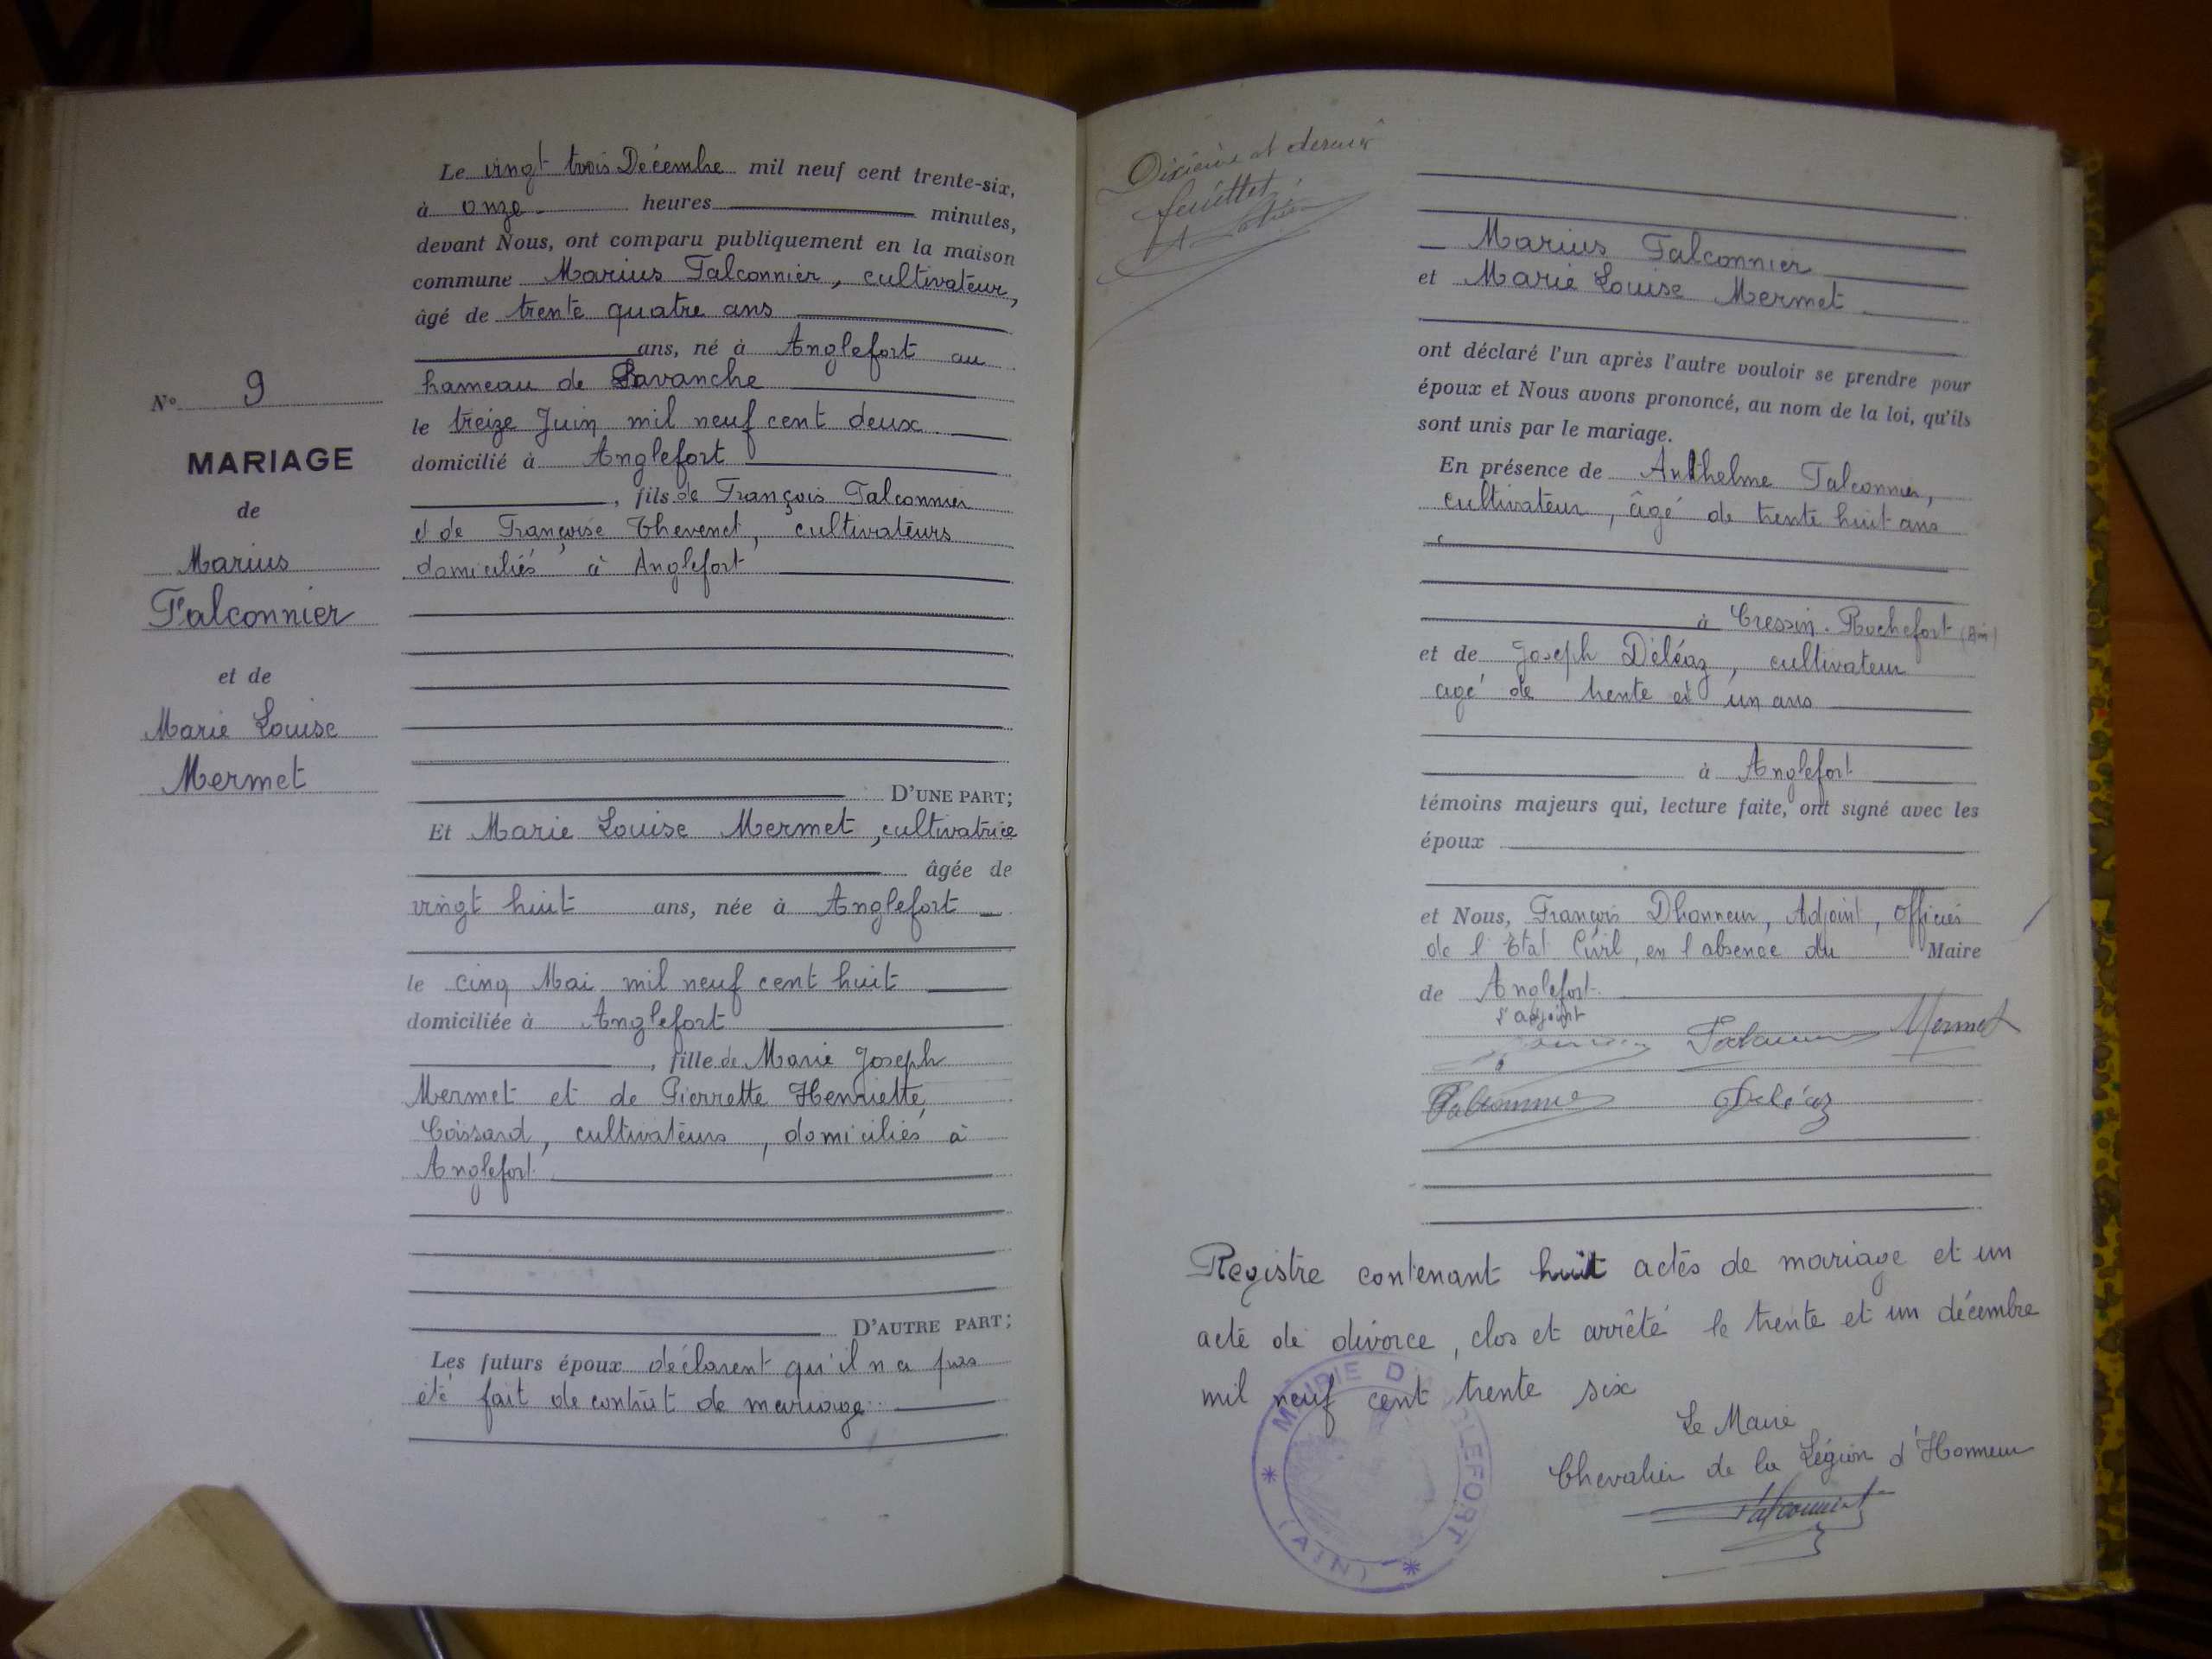 Le vingt trois Décembre mil neuf cent trente-six,
à onze heures minutes,
devant Nous, ont comparu publiquement en la maison
commune Marius Falconnier, cultivateur,
âgé de trente quatre ans
ans, né à Anglefort au
hameau de Lavanche
le treize Juin mil neuf cent deux
domicilié à Anglefort
, fils de François Falconnier
et de Françoise Thevenet, cultivateurs
domiciliés à Anglefort
D'UNE PART;
N° 9
MARIAGE
de
Marius
Falconnier
et de
Marie Louise
Mermet
Et Marie Louise Mermet, cultivatrice
âgée de
vingt huit ans, née à Anglefort
le cinq Mai mil neuf cent huit
domiciliée à Anglefort
, fille de Marie Joseph
Mermet et de Pierrette Henriette,
Coissard, cultivateurs, domiciliés à
Anglefort
D'AUTRE PART;
Les futurs époux déclarent qu'il n'a pas
été fait de contrat de mariage
Dixième et dernier
feuillet
Marius Falconnier
et Marie Louise Mermet
ont déclaré l'un après l'autre vouloir se prendre pour
époux et Nous avons prononcé, au nom de la loi, qu'ils
sont unis par le mariage.
En présence de Anthelme Falconnier,
cultivateur, âgé de trente huit ans
à Cressin-Rochefort (Ain)
et de Joseph Déléaz, cultivateur
agé de trente et un ans
à Anglefort
témoins majeurs qui, lecture faite, ont signé avec les
époux
et Nous, François Dhonneur, Adjoint, Officier
de l'Etat Civil, en l'absence du Maire
de Anglefort
l'adjoint
Mermet
Falconnier Deléaz
Registre contenant huit actes de mariage et un
acte de divorce, clos et arrêté le trente et un décembre
mil neuf cent trente six
Le Maire
Chevalier de la Légion d'Honneur
Falconnier
MAIRIE D'ANGLEFORT
(AIN)